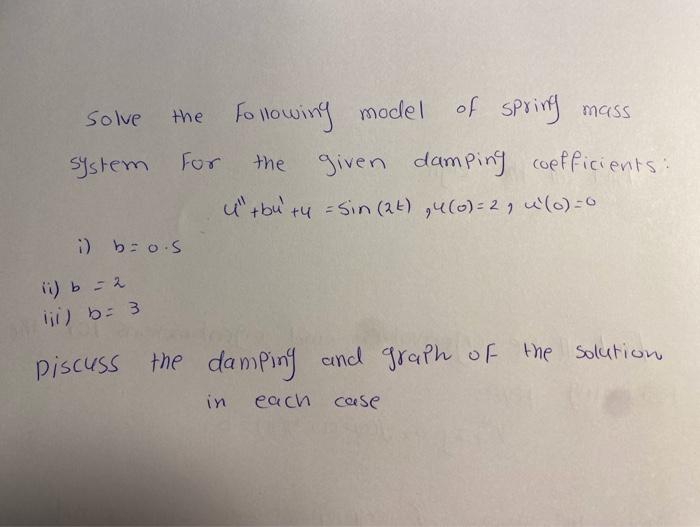 Solve the Following model of spring mass
system For the given damping coefficients:
u'' + bu' + u = sin (2t) , u(0) = 2 , u'(0) = 0
i) b = 0.5
ii) b = 2
iii) b = 3
Discuss the damping and graph of the solution
in each case